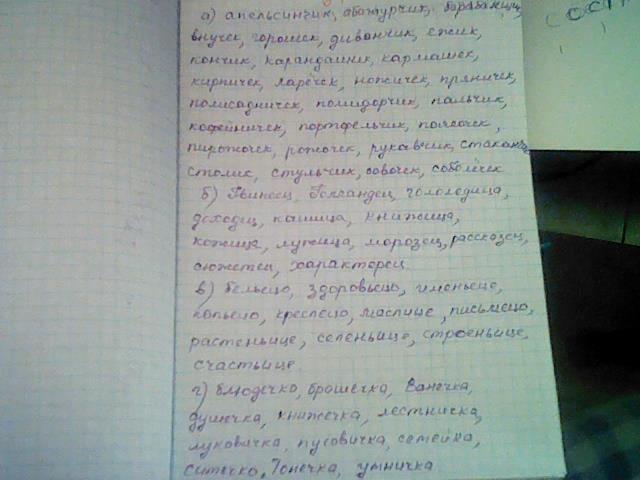 а) апельсинчик, абажурчик, барабанщик,
внучек, горошек, диванчик, ёжик,
кончик, карандашик, кармашек,
кирпичек, ларёчек, ножичек, пряничек,
полисадничек, помидорчик, пальчик,
кофейничек, портфельчик, поясочек,
пирожочек, рожочек, рукавчик, стаканч
столик, стульчик, совочек, соболёчек
б) Гололедица,
доходец, кашица, книжица,
кожица, лужица, морозец, рассказец,
сюжетец, характерец.
в) бельецо, здоровьецо, именьеце,
копьецо, креслецо, маслице, письмецо,
растеньице, селеньице, строеньице,
счастьице.
г) блюдечко, брошечка, Ванечка,
душечка, книжечка, лестничка,
луковичка, пуговичка, семейка,
ситечко, Тонечка, умничка
сост